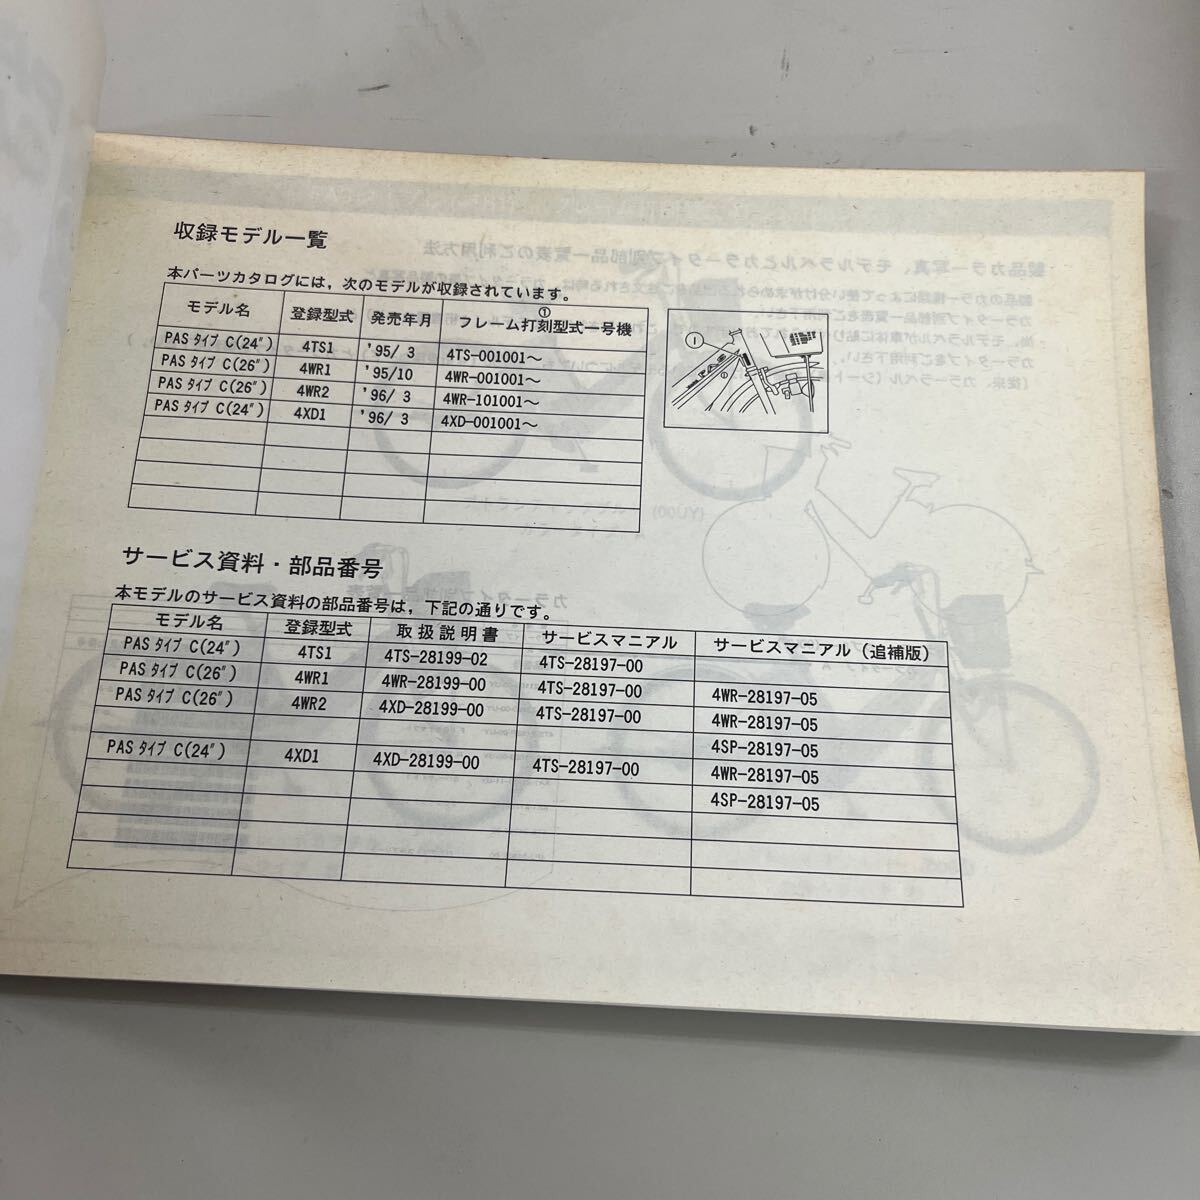 収録モデル一覧
本パーツカタログには，次のモデルが収録されています。
モデル名 登録型式 発売年月 ① フレーム打刻型式一号機
PAS タイプ C(24") 4TS1 '95/ 3 4TS-001001～
PAS タイプ C(26") 4WR1 '95/10 4WR-001001～
PAS タイプ C(26") 4WR2 '96/ 3 4WR-101001～
PAS タイプ C(24") 4XD1 '96/ 3 4XD-001001～
サービス資料・部品番号
本モデルのサービス資料の部品番号は，下記の通りです。
モデル名 登録型式 取扱説明書 サービスマニアル サービスマニアル（追補版）
PAS タイプ C(24") 4TS1 4TS-28199-02 4TS-28197-00
PAS タイプ C(26") 4WR1 4WR-28199-00 4TS-28197-00 4WR-28197-05
PAS タイプ C(26") 4WR2 4XD-28199-00 4TS-28197-00 4WR-28197-05
4SP-28197-05
PAS タイプ C(24") 4XD1 4XD-28199-00 4TS-28197-00 4WR-28197-05
4SP-28197-05